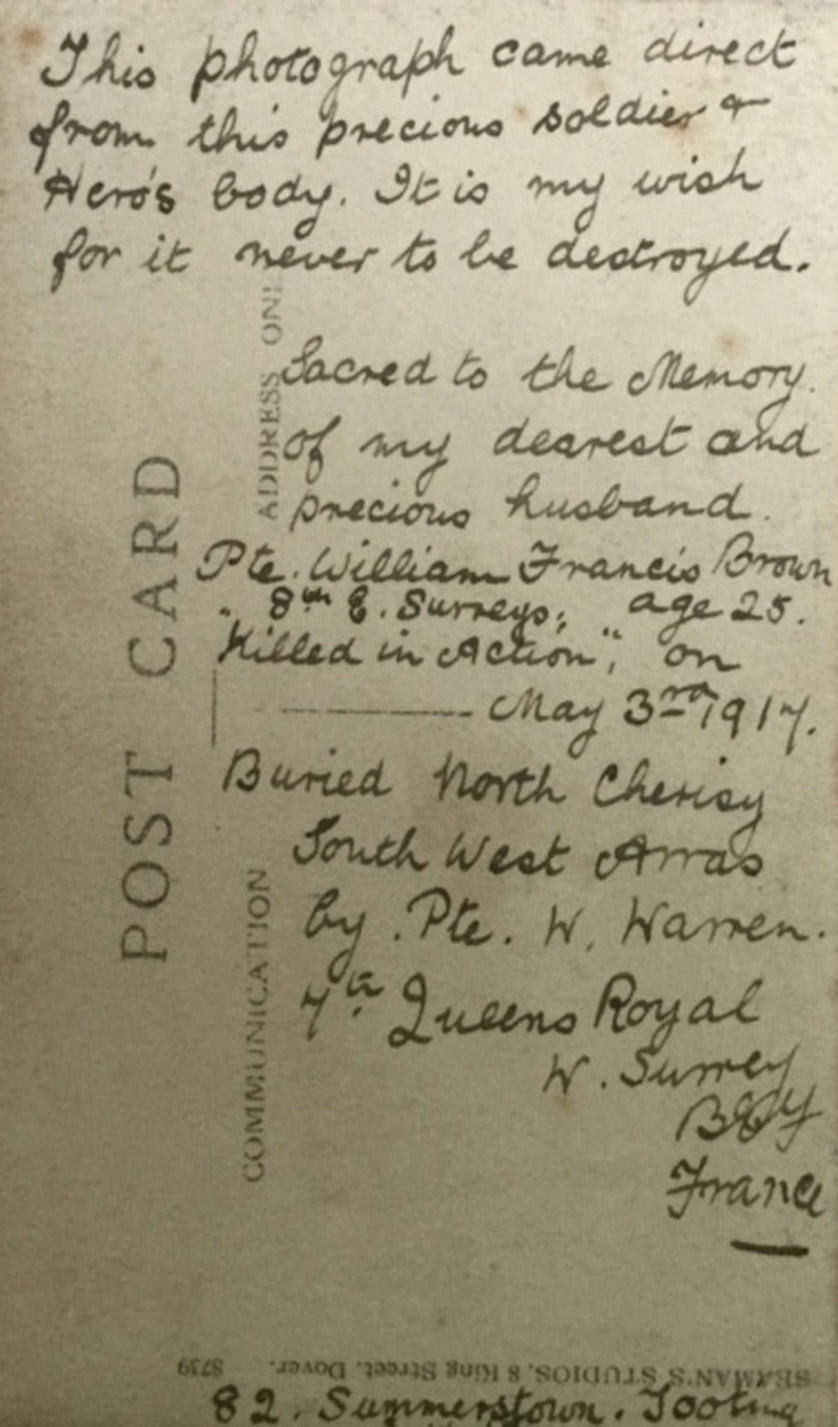 This photograph came direct
from this precious soldier &
Hero's body. It is my wish
for it never to be destroyed.
Sacred to the Memory.
of my dearest and
precious husband.
Pte. William Francis Brown
" 8th E. Surreys; age 25.
Killed in Action", on
May 3rd 1917.
Buried North Cherisy
South West Arras
by. Pte. W. Warren.
7th Queens Royal
W. Surrey
BEF
France
POST CARD
ADDRESS ONL
COMMUNICATION
SEAMAN'S STUDIOS, 8 King Street, Dover. 8739
82. Summerstown. Tooting